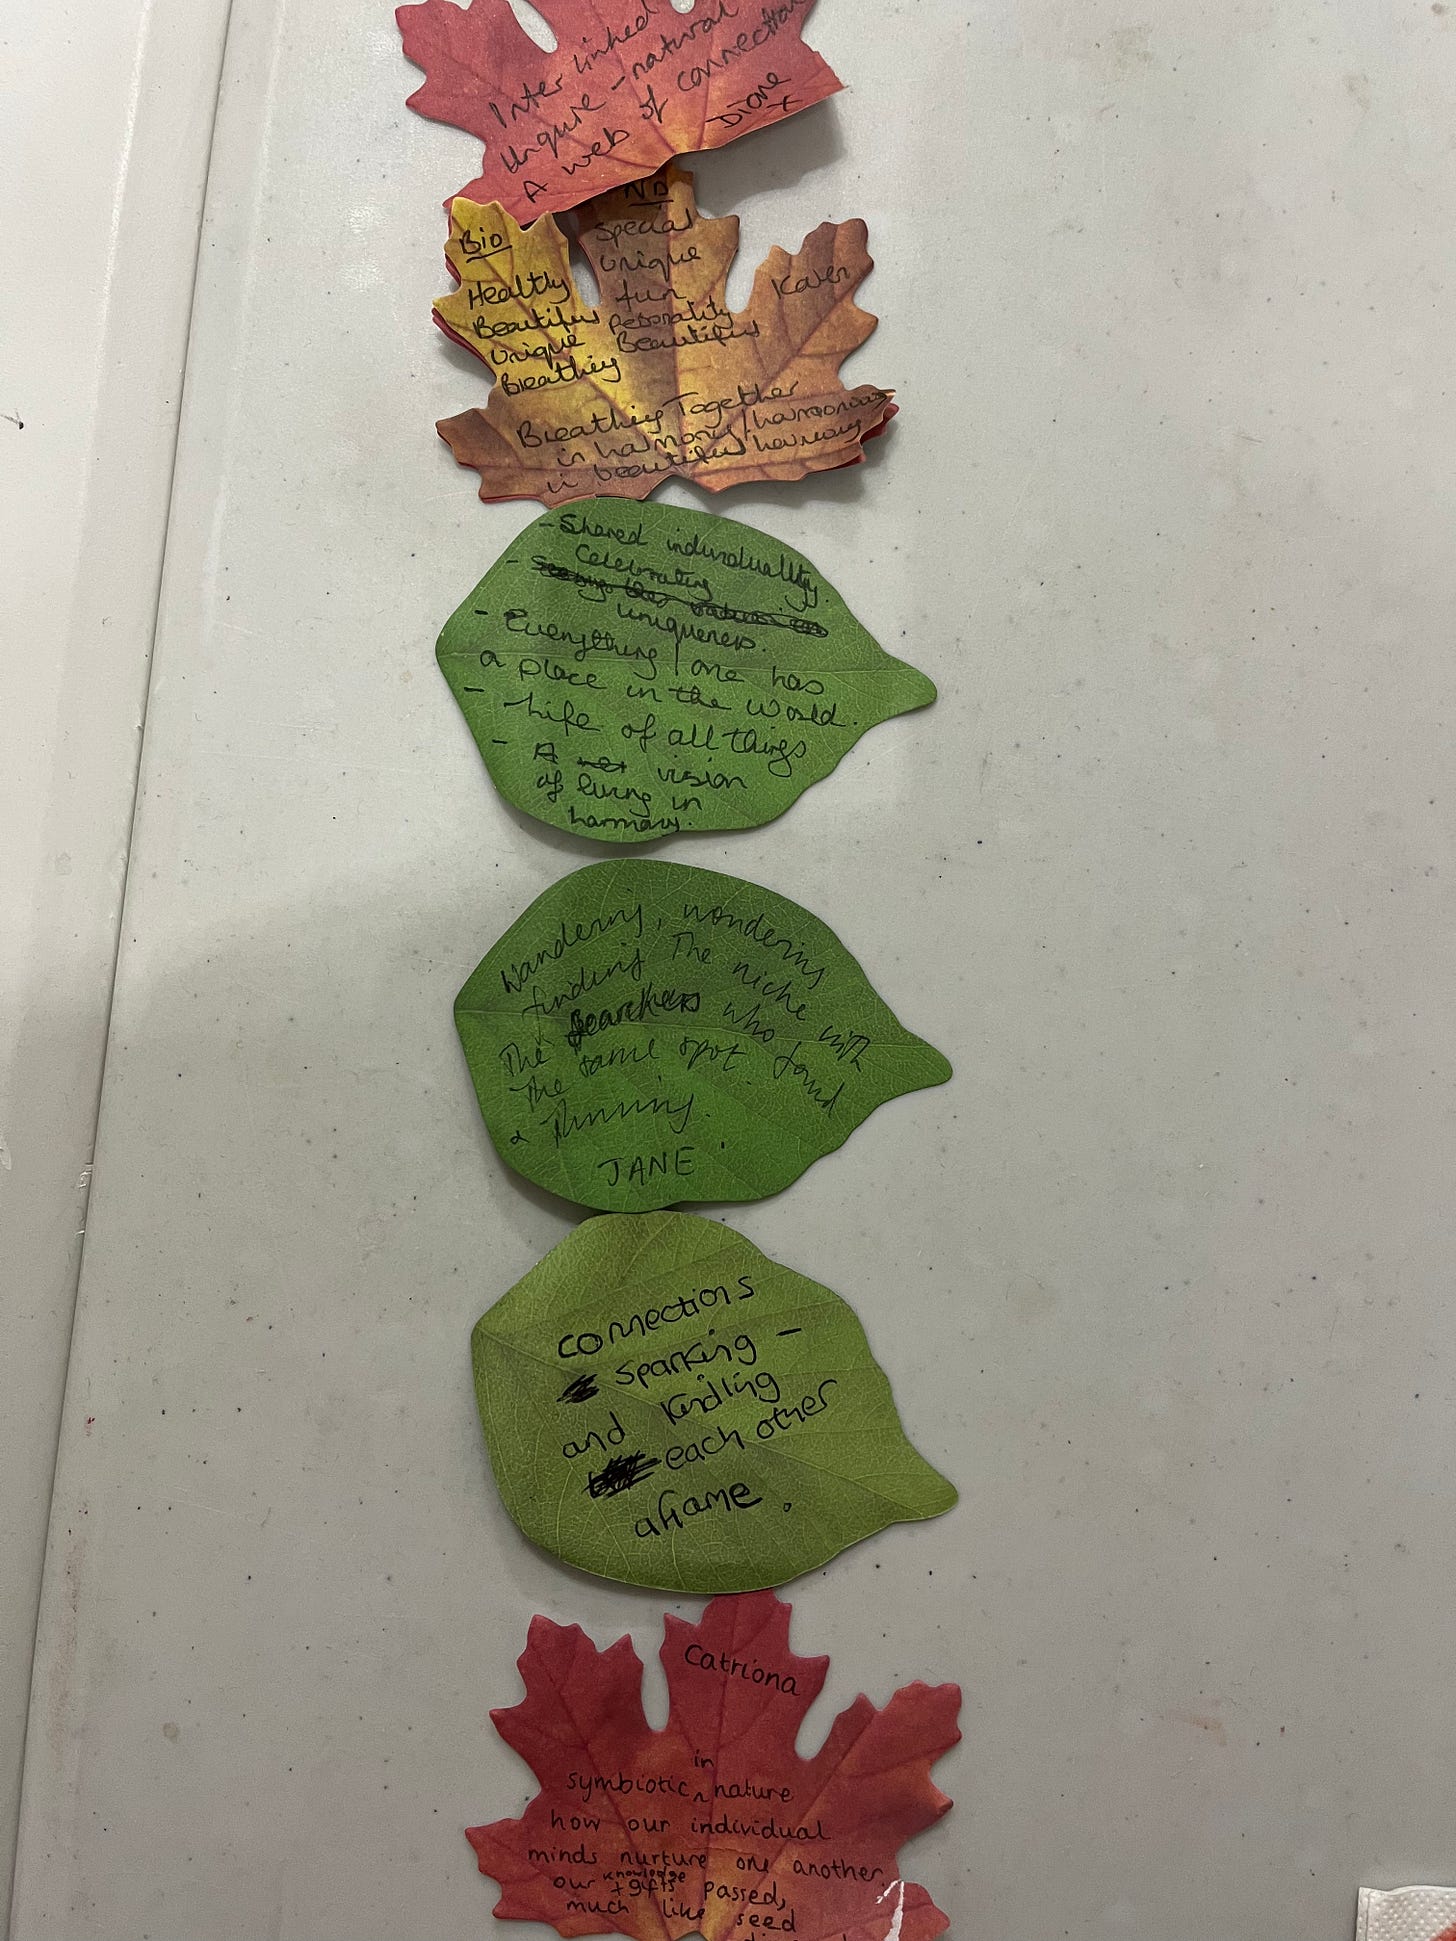 Inter linked
Unquie - natural
A web of connection
Diane
x
Bio
Healthy
Beautiful
Unique
Breathing
ND
Special
Unique
fun
personality
Beautiful
Karen
Breathing Together
in harmony/harmonious
in beautiful harmony
- Shared individuality.
Celebrating
-
uniqueness.
- Everything / one has
a place in the world.
- Life of all things
- A vision
of living in
harmony.
Wandering, wondering
finding The niche with
The Searchers who found
The same spot.
& Thriving.
JANE.
connections
sparking -
and kindling
each other
aflame.
Catriona
in
symbiotic ^ nature
how our individual
minds nurture one another.
knowledge
our + gifts passed,
much like seed